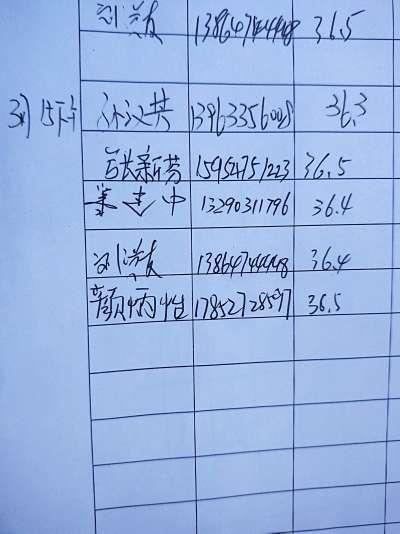 刘 13864744448 36.5
3月15日 孙汉共 13963356028 36.3
张新芬 15954751223 36.5
姜志中 13290311796 36.4
刘 13864744448 36.4
颜炳怡 17852728597 36.5